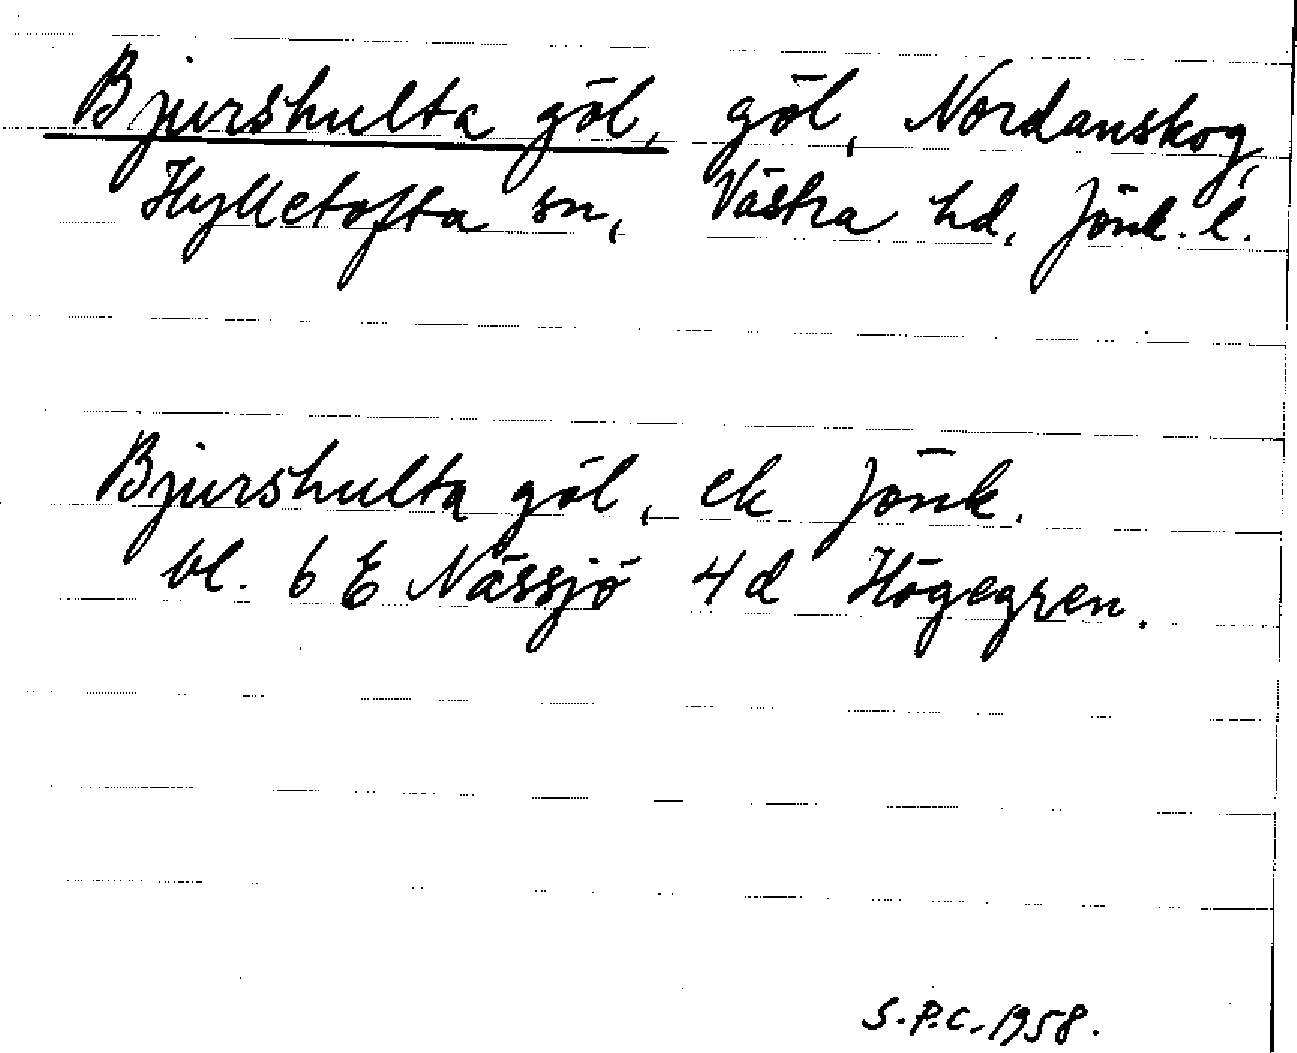 Bjurshulta göl, göl, Nordanskog,
Hylletofta sn, Västra hd, Jönk. l.
Bjurshulta göl, ek Jönk.
bl. 6 E Nässjö 4d Högegren.
S.P.C. 1958.